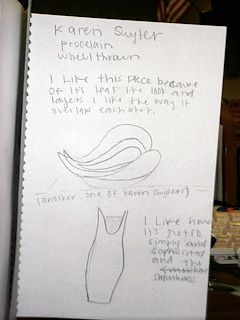 Karen Swyler
porcelain
wheel thrown
I Like this piece because
of it's leaf like look and
layers I like the way it
overlaps eachother.
(another one of Karen Swylers)
I Like how
it's just so
simply and
sophisticated
and the
smoothness